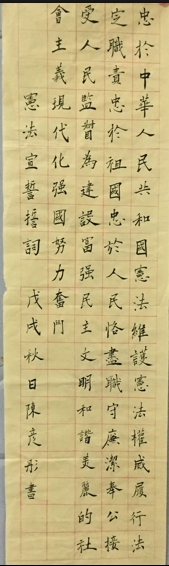 忠於中華人民共和國憲法維護憲法權威履行法
定職責忠於祖國忠於人民恪盡職守廉潔奉公接
受人民監督為建設富强民主文明和諧美麗的社
會主義現代化强國努力奮鬥
憲法宣誓誓詞
戊戌秋日陳彦彤書